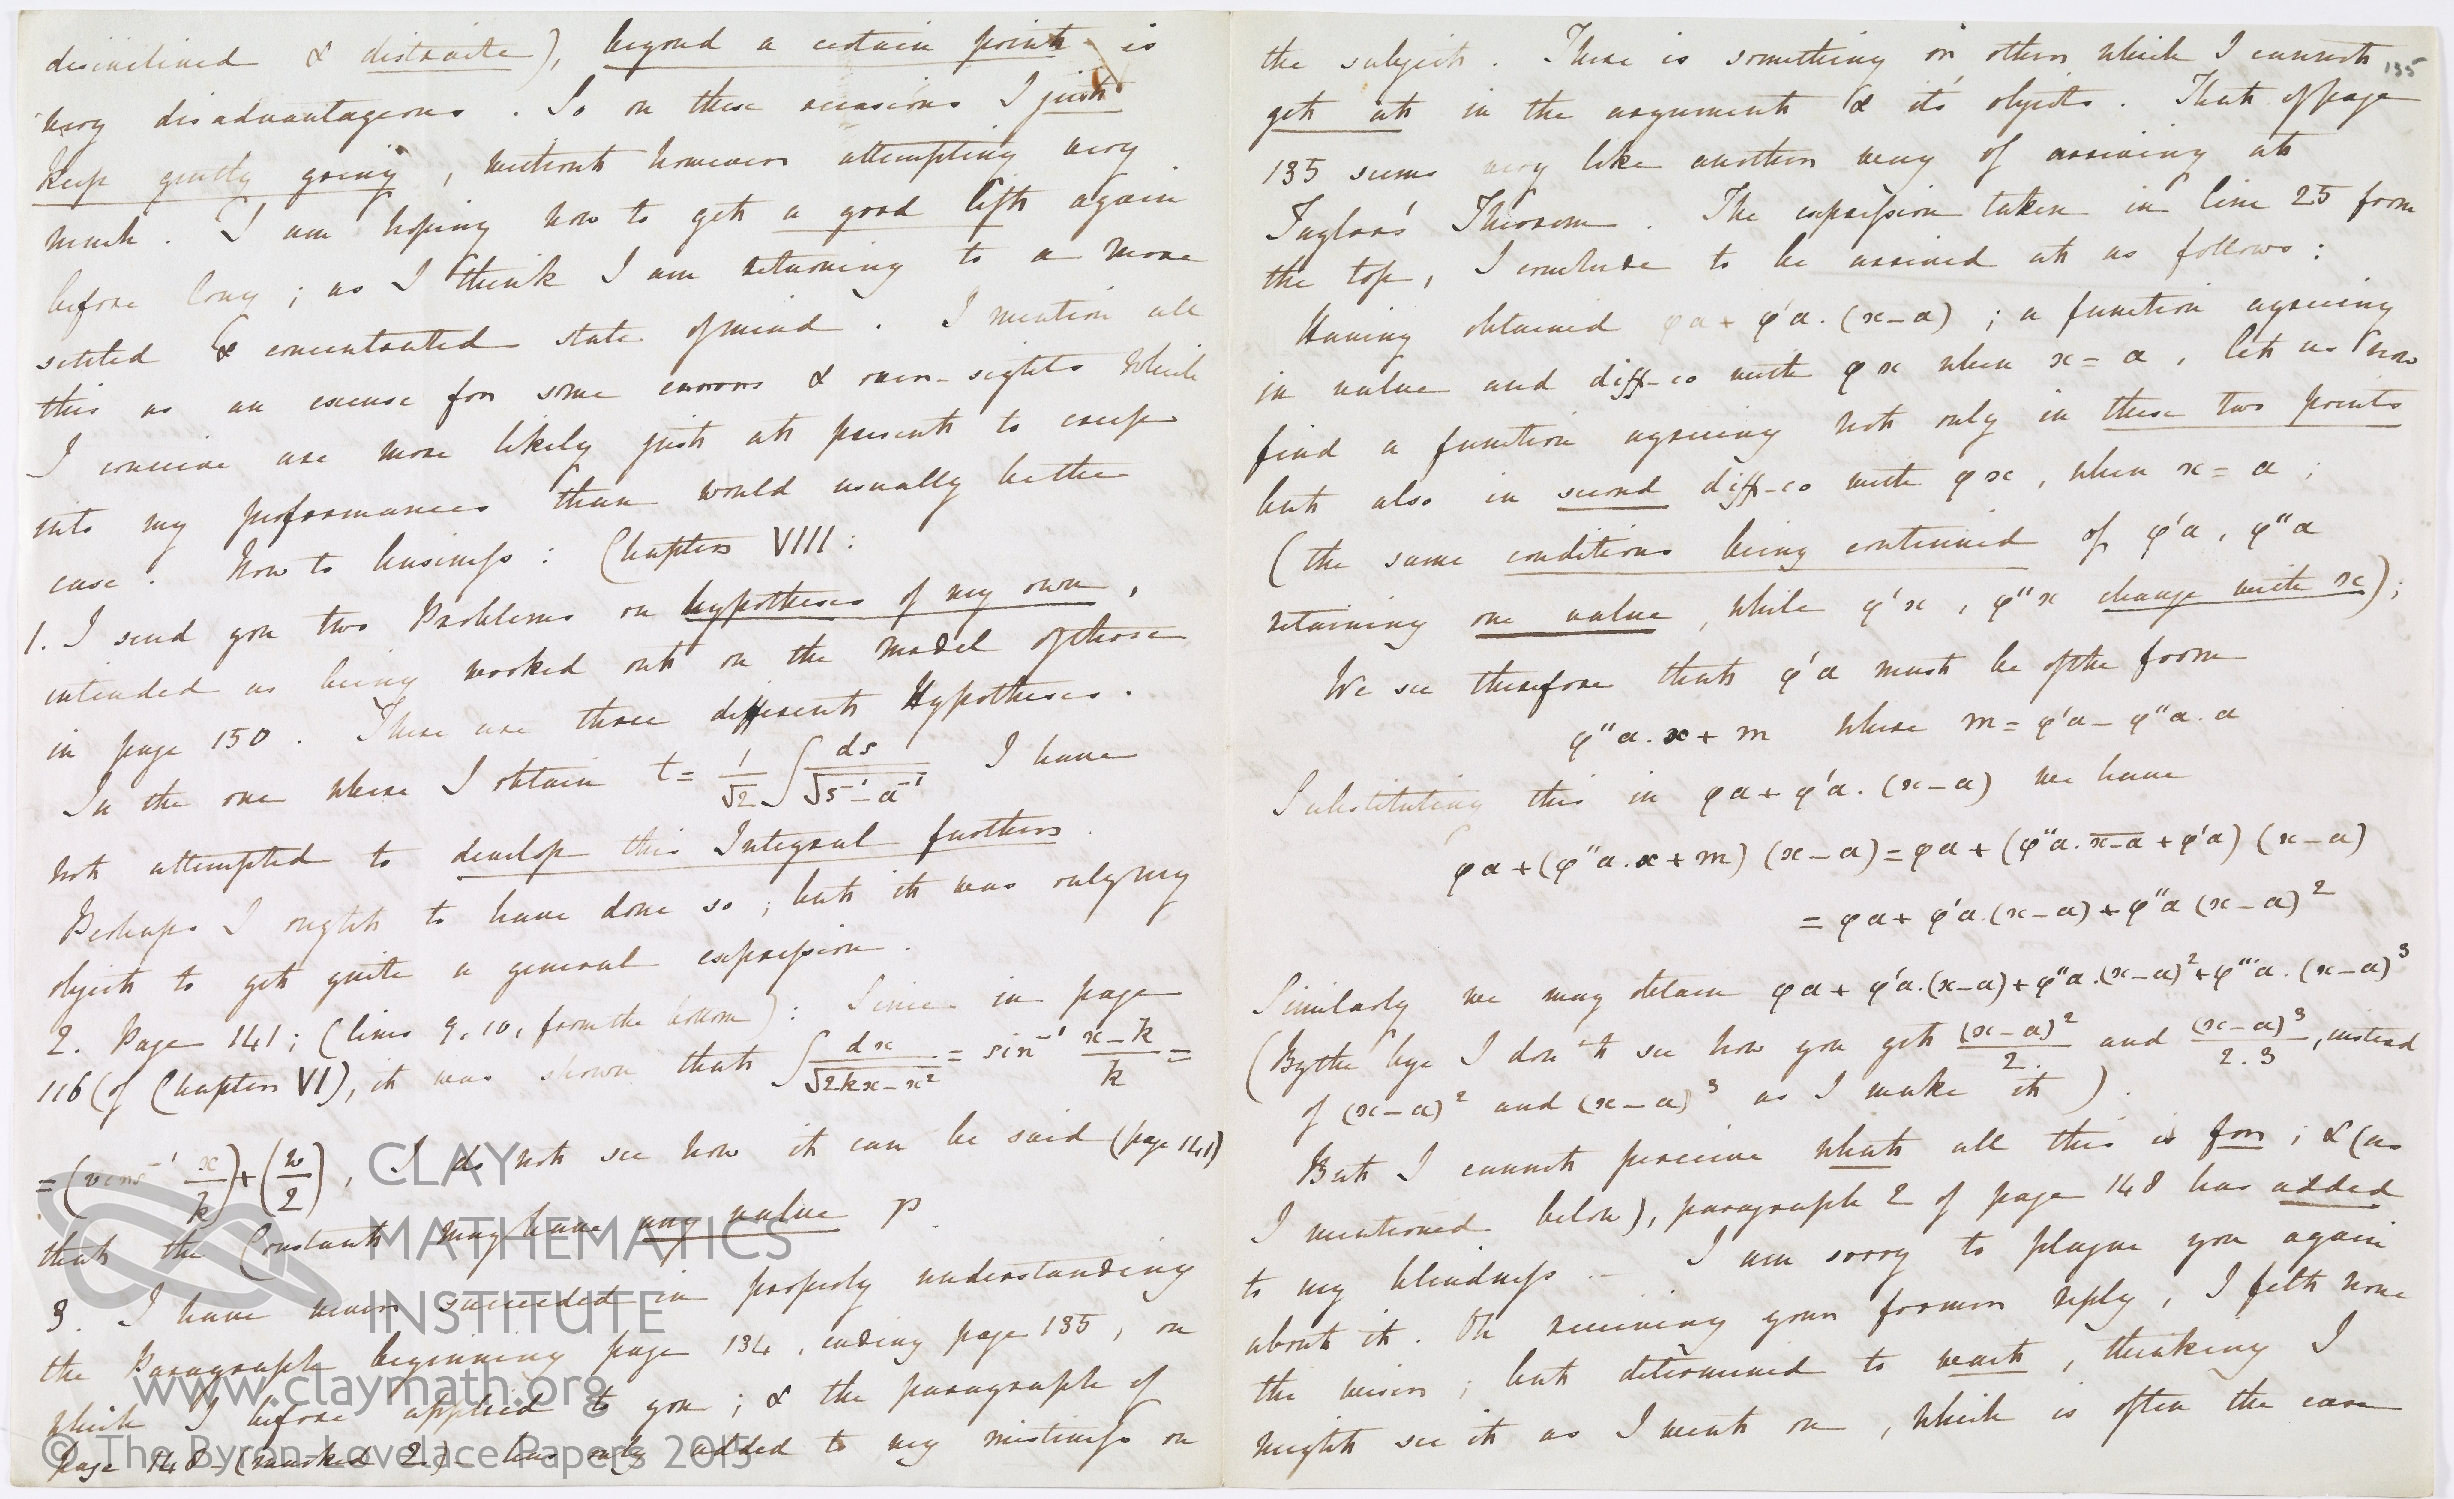 disinclined & distraite), beyond a certain point is
very disadvantageous. So on these occasions I just
keep gently going, without however attempting very
much. I am hoping now to get a good lift again
before long; as I think I am returning to a more
settled & concentrated state of mind. I mention all
this as an excuse for some errors & over-sights which
I conceive are more likely just at present to creep
into my performances than would usually be the
case. Now to business: Chapter VIII:
1. I send you two Problems on hypotheses of my own,
intended as being worked out on the model of those
in page 150. There are three different Hypotheses.
In the one where I obtain t = 1/√2 ∫ ds/√(s⁻¹ − a⁻¹) I have
not attempted to develop this Integral further.
Perhaps I ought to have done so; but it was only my
object to get quite a general expression.
2. Page 141; (lines 9, 10, from the bottom): Since in page
116 (of Chapter VI), it was shown that ∫ dx/√(2kx − x²) = sin⁻¹ (x−k)/k =
= (vers⁻¹ x/k) + (π/2), I do not see how it can be said (page 141)
that the Constant may have any value p.
3. I have never succeeded in properly understanding
the Paragraph beginning page 134, ending page 135, on
which I before applied to you; & the paragraph of
page 148 (marked 2.) has only added to my mistiness on
CLAY
MATHEMATICS
INSTITUTE
www.claymath.org
© The Byron-Lovelace Papers 2015
135
the subject. There is something or other which I cannot
get at in the argument & it's objects. That of page
135 seems very like another way of arriving at
Taylor's Theorem. The expression taken in line 25 from
the top, I conclude to be arrived at as follows:
Having obtained φa + φ'a.(x−a); a function agreeing
in value and diff-co with φx when x = a, let us now
find a function agreeing not only in these two points
but also in second diff-co with φx, when x = a;
(the same conditions being continued of φ'a, φ''a
retaining one value, while φ'x, φ''x change with x);
We see therefore that φ'a must be of the form
φ''a.x + m where m = φ'a − φ''a.a
Substituting this in φa + φ'a.(x−a) we have
φa + (φ''a.x + m)(x−a) = φa + (φ''a.x̅−̅a̅ + φ'a)(x−a)
= φa + φ'a.(x−a) + φ''a(x−a)²
Similarly we may obtain φa + φ'a.(x−a) + φ''a.(x−a)² + φ'''a.(x−a)³
(By the bye I don't see how you get (x−a)²/2. and (x−a)³/2.3, instead
of (x−a)² and (x−a)³ as I make it).
But I cannot perceive what all this is for; & (as
I mentioned below), paragraph 2 of page 148 has added
to my blindness – I am sorry to plague you again
about it. On receiving your former reply, I felt none
the wiser; but determined to wait, thinking I
might see it as I went on, which is often the case